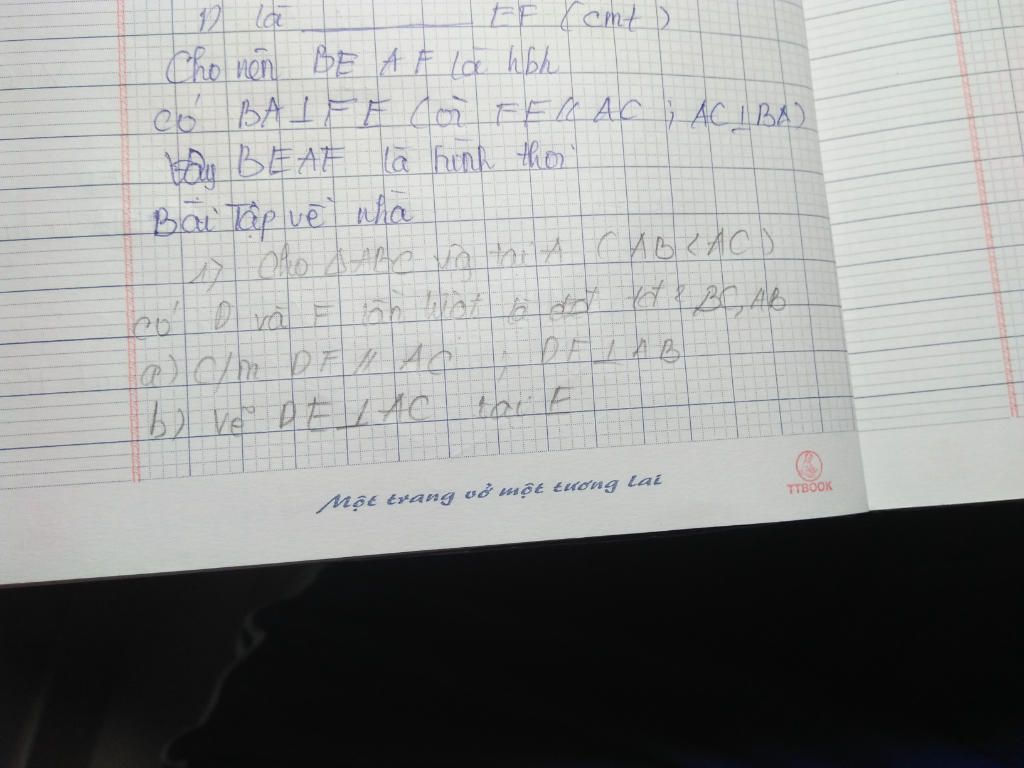 D là EF (cmt)
Cho nên BE AF là hbh
có BA⊥FE (vì FE // AC ; AC⊥BA)
Vậy BEAF là hình thoi
Bài Tập về nhà
1) Cho ΔABC vg tại A (AB<AC)
có D và F lần lượt là đ t² BC, AB
a) C/m DF // AC ; DF⊥AB
b) Vẽ DE⊥AC tại E
Một trang vở một tương lai
TTBOOK